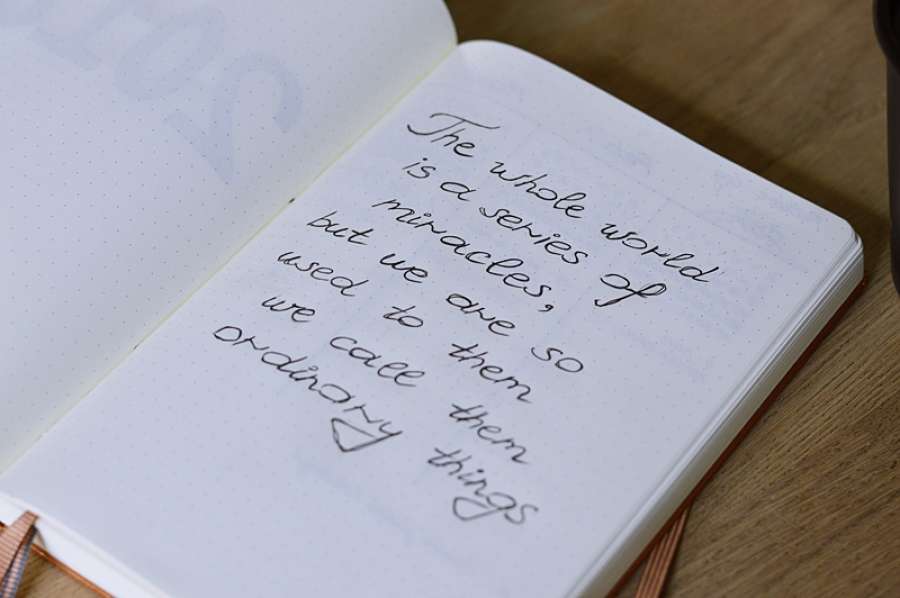 The whole world
is a series of
miracles,
but we are so
used to them
we call them
ordinary things